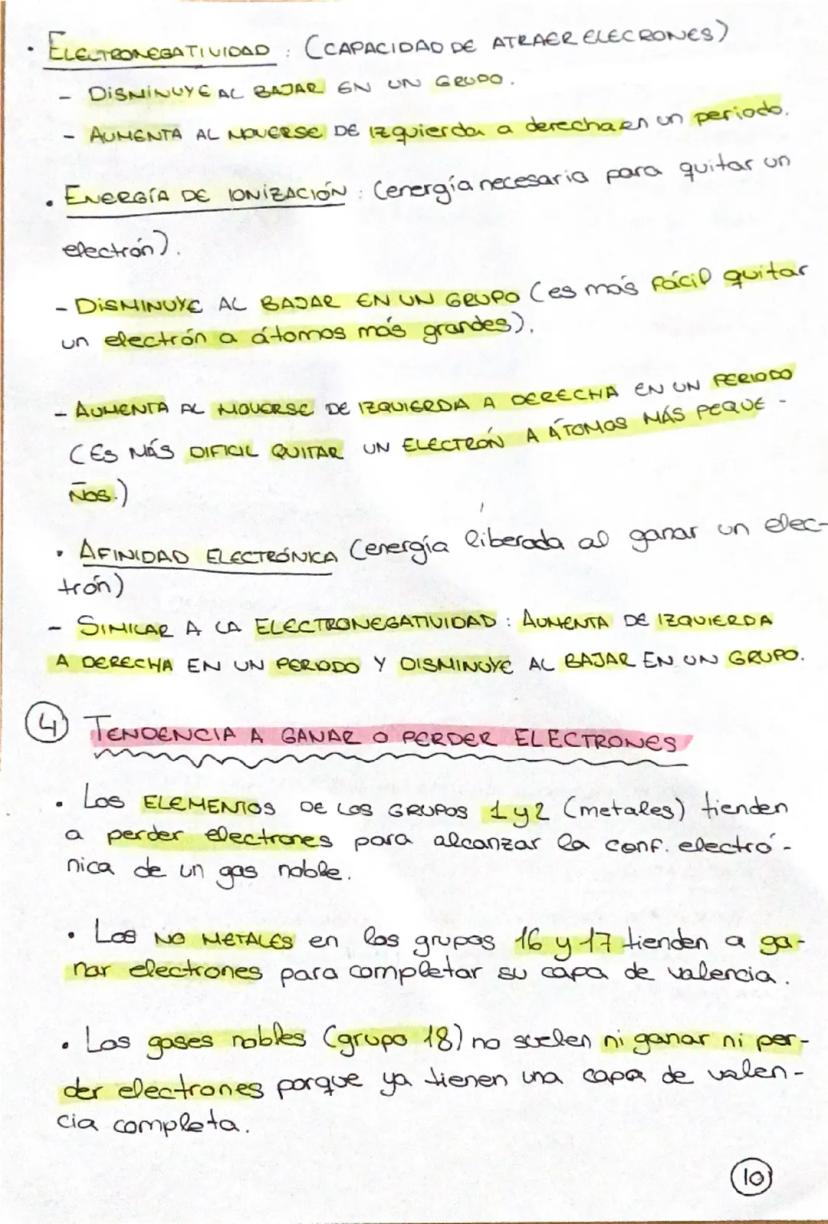 · ELECTRONEGATIVIDAD : (CAPACIDAD DE ATRAER ELECRONES)
- DISMINUYE AL BAJAR EN UN GRUPO.
- AUMENTA AL MOVERSE DE izquierda a derecha en un periodo.
· ENERGÍA DE IONIZACIÓN : (energía necesaria para quitar un
electrón).
- DISMINUYE AL BAJAR EN UN GRUPO (es más fácil quitar
un electrón a átomos más grandes).
- AUMENTA AL MOVERSE DE IZQUIERDA A DERECHA EN UN PERIODO
(ES MÁS DIFICIL QUITAR UN ELECTRÓN A ÁTOMOS MÁS PEQUE-
ÑOS.)
· AFINIDAD ELECTRÓNICA (energía liberada al ganar un elec-
trón)
- SIMILAR A LA ELECTRONEGATIVIDAD : AUMENTA DE IZQUIERDA
A DERECHA EN UN PERIODO Y DISMINUYE AL BAJAR EN UN GRUPO.
4 TENDENCIA A GANAR O PERDER ELECTRONES
· Los ELEMENTOS DE LOS GRUPOS 1 y 2 (metales) tienden
a perder electrones para alcanzar la conf. electró-
nica de un gas noble.
· Los NO METALES en los grupos 16 y 17 tienden a ga-
nar electrones para completar su capa de valencia.
· Los gases nobles (grupo 18) no suelen ni ganar ni per-
der electrones porque ya tienen una capa de valen-
cia completa.
10